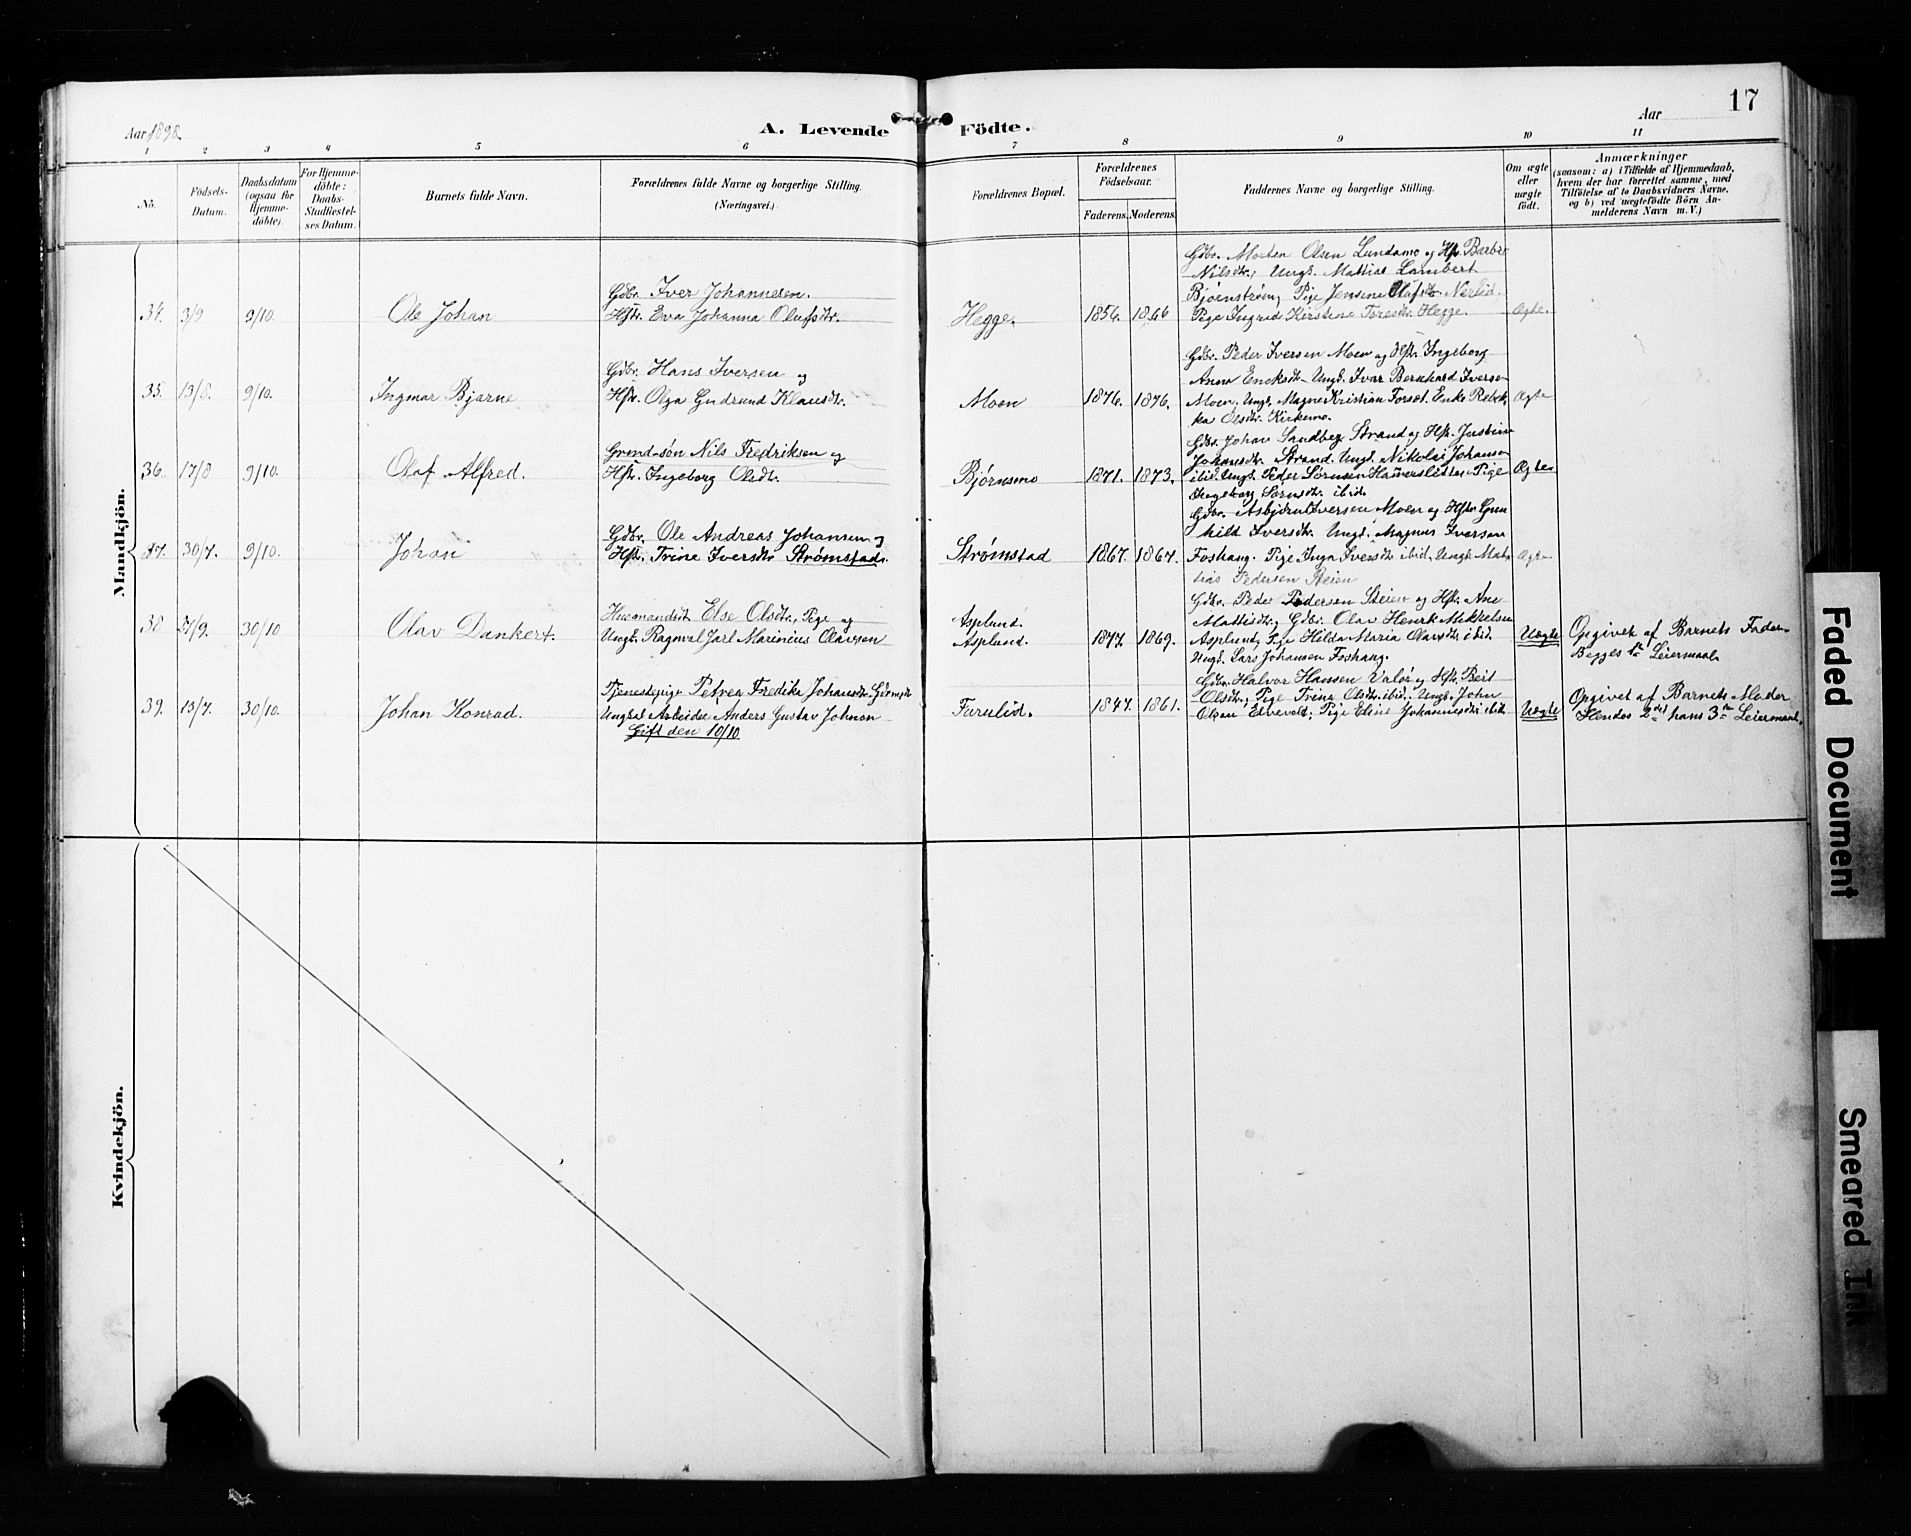 Aar 1898.
A. Levende Födte.
Aar
17
1 2 3 4 5 6 7 8 9 10 11
No.
Födsels-
Datum.
Daabsdatum
(ogsaa for
Hjemme-
döbte).
For Hjemme-
döbte:
Daabs-
Stadfæstel-
ses Datum.
Barnets fulde Navn.
Forældrenes fulde Navne og borgerlige Stilling.
(Næringsvei.)
Forældrenes Bopæl.
Forældrenes
Födselsaar.
Faderens. Moderens.
Faddernes Navne og borgerlige Stilling.
Om ægte
eller
uægte
födt.
Anmærkninger
(saasom: a) i Tilfælde af Hjemmedaab,
hvem der har forrettet samme, med
Tilföielse af to Daabsvidners Navne.
og b) ved uægtefödte Börn An-
melderens Navn m. V.)
Mandkjön.
34. 3/9 9/10. Ole Johan
Gdbr. Iver Johannesen.
Hstr. Eva Johanna Olufsdtr.
Hegge. 1856. 1866
Gdbr. Morten Olsen Lundamo og Hstr. Barbro
Nilsdtr., Ungk. Mattias Lambert
Bjørnstrøm, Pige Jensine Olafsdtr. Nerlid.
Pige Ingrid Kirstine Toresdtr. Hegge.
Ægte.
35. 13/8. 9/10. Ingmar Bjarne
Gdbr. Hans Iversen og
Hstr. Olga Gudrund Klausdtr.
Moen 1876. 1876.
Gdbr. Peder Iversen Moen og Hstr. Ingeborg
Anna Ericksdtr. Ungk. Ivar Bernhard Iversen
Moen, Ungk. Magne Kristian Forset. Enke Rebek-
ka Olsdtr. Kirkemo.
Ægte
36. 17/8 9/10. Olaf Alfred.
Grmd-søn Nils Fredriksen og
Hstr. Ingeborg Olsdtr.
Bjørnsmo 1871. 1873.
Gdbr. Johan Sandberg Strand og Hstr. Justine
Johansdtr. Strand. Ungk. Nikolai Johansen
ibid. Ungk. Peder Sørnsen Haversletten. Pige
Ingeborg Sørnsdtr. ibid.
Ægte
37. 30/7. 9/10. Johan
Gdbr. Ole Andreas Johansen og
Hstr. Trine Iversdtr. Strømstad.
Strømstad 1867. 1867.
Gdbr. Asbjørn Iversen Moen og Hstr. Gun
hild Iversdtr. Ungk. Magnus Iversen
Foshaug. Pige Inga Iversdtr. ibid. Ungk. Mat-
tias Pedersen Steien
Ægte
38 27/9. 30/10 Olav Dankert.
Husmandsdt. Else Olsdtr., Pige og
Ungk. Ragnval Jarl Marinius Olaussen
Asplund.
Asplund. 1877. 1869.
Gdbr. Peder Pedersen Steien og Hstr. Ane
Mattisdtr., Gdbr. Olav Henrik Mikkelsen
Asplund, Pige Hilda Maria Olavsdtr. ibid.
Ungk. Lars Johansen Foshaug.
Uægte
Opgivet af Barnets Fader.
Begges 1te Leiermaal.
39. 13/7. 30/10. Johan Konrad.
Tjenestepige Petrea Fredika Johansdtr.
Ungkal Arbeider Anders Gustav Johnson
Gift den 10/10
Furulid. 1847. 1861.
Gdbr. Halvor Hansen Valør og Hstr. Berit
Olsdtr., Pige Trina Olsdtr. ibid. Ungk. John
Olsen Elvevold; Pige Eline Johannesdtr. ibid
Uægte
Opgivet af Barnets Moder
Hendes 2det hans 3te Leiermaal.
Kvindekjön.
Faded Document
Smeared Ink